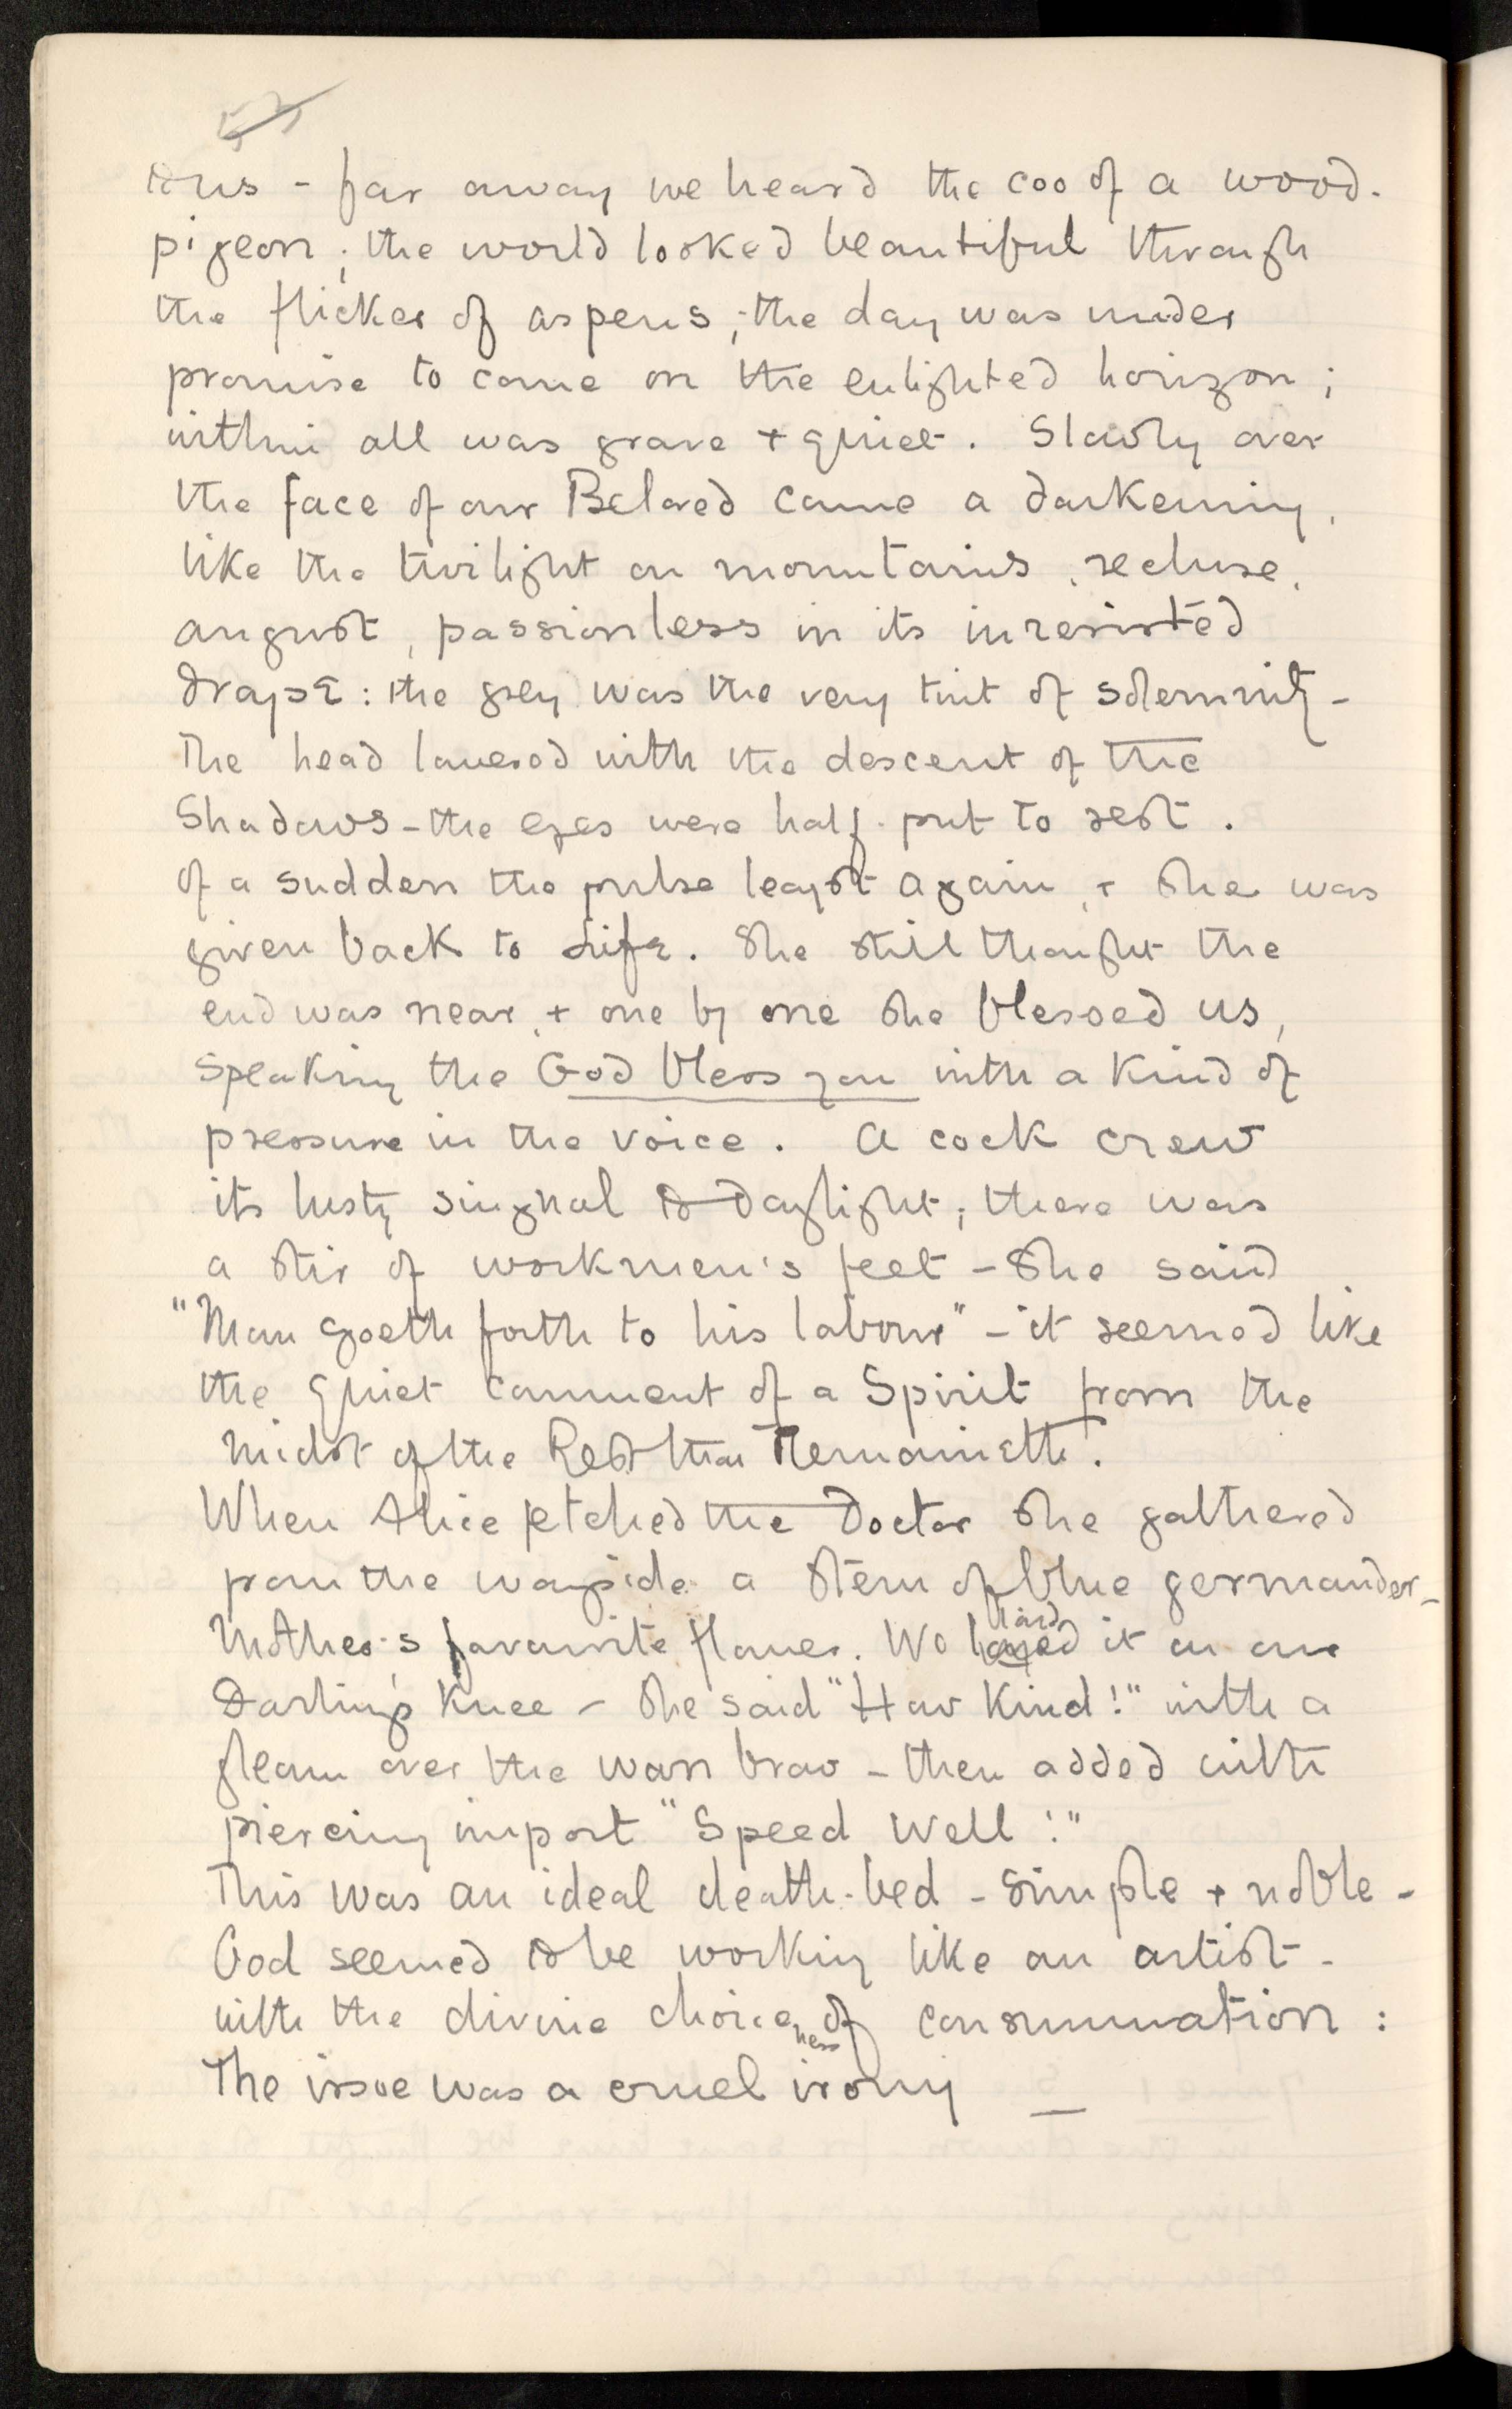 this - far away we heard the coo of a wood-
pigeon; the world looked beautiful through
the flicker of aspens; the day was under
promise to come on the enlighted horizon;
within all was grave + quiet. Slowly over
the face of our Beloved came a darkening,
like the twilight on mountains, recluse,
august, passionless in its inresisted
drapE: the grey was the very tint of solemnity -
The head lowered with the descent of the
Shadows - the eyes were half-put to rest.
Of a sudden the pulse leapt again, + she was
given back to Life. She still thought the
end was near, + one by one she blessed us,
speaking the God bless you with a kind of
pressure in the voice. A cock crew
its lusty singnal to daylight; there was
a stir of workmen's feet - She said
"Man goeth forth to his labour" - it seemed like
the quiet comment of a Spirit from the
midst of the Rest that Remaineth.
When Alice fetched the Doctor she gathered
from the wayside a stem of blue germander -
Mother's favourite flower. We laid it on our
Darling's knee - she said "How Kind!" with a
gleam over the wan brow - then added with
piercing import "Speed Well!"
This was an ideal death-bed - simple + noble -
God seemed to be working like an artist -
with the divine choiceness of consummation:
The issue was a cruel irony _